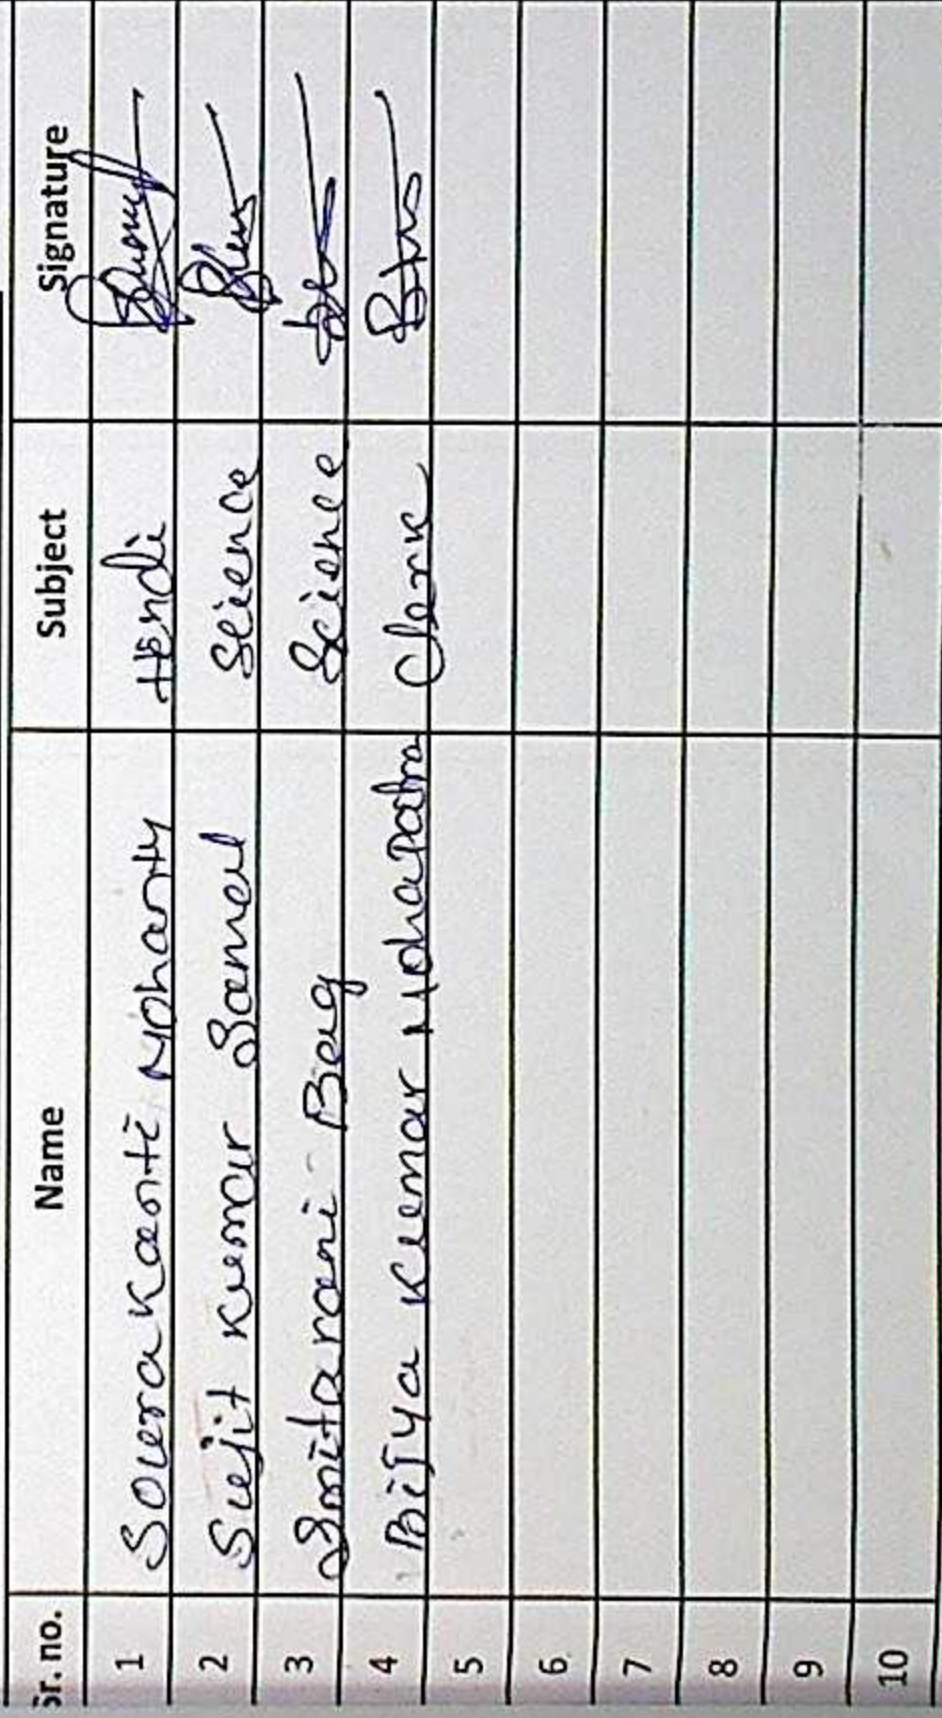 Sr. no. Name Subject Signature
1 Soura Kanti Mohanty Hindi
2 Sujit Kumar Samal Science
3 Smitarani Beng Science
4 Bijya Kumar Mohapatra Clerk
5
6
7
8
9
10